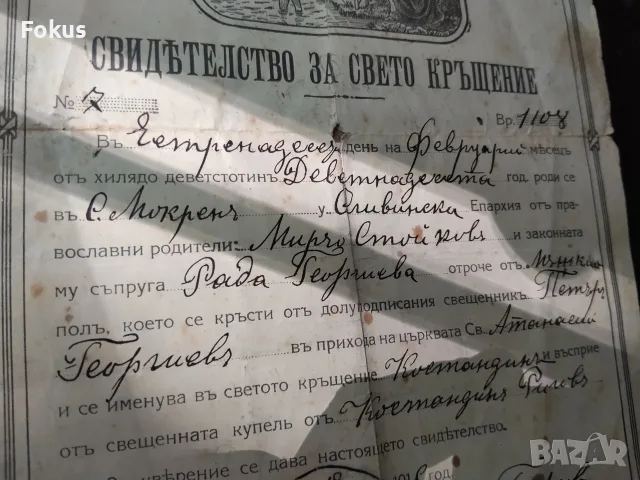 Fokus
СВИДѢТЕЛСТВО ЗА СВЕТО КРЪЩЕНИЕ
№ 7 Вр. 1108
Въ день на Февруарий мѣсецъ
отъ хилядо деветстотинъ Деветнадесета год. роди се
въ с. Мокренъ у Сливенска Епархия отъ пра-
вославни родители: Мирчо Стойковъ и законната
му съпруга Рада Георгиева отроче отъ мѫжки
полъ, което се кръсти отъ долуподписания свещенникъ Петъръ
Георгиевъ въ прихода на църквата Св. Атанасий
и се именува въ светото кръщение Костандинъ и въсприе
отъ свещенната купель отъ Костандинъ
увѣрение се дава настоящето свидѣтелство.
BAZAR